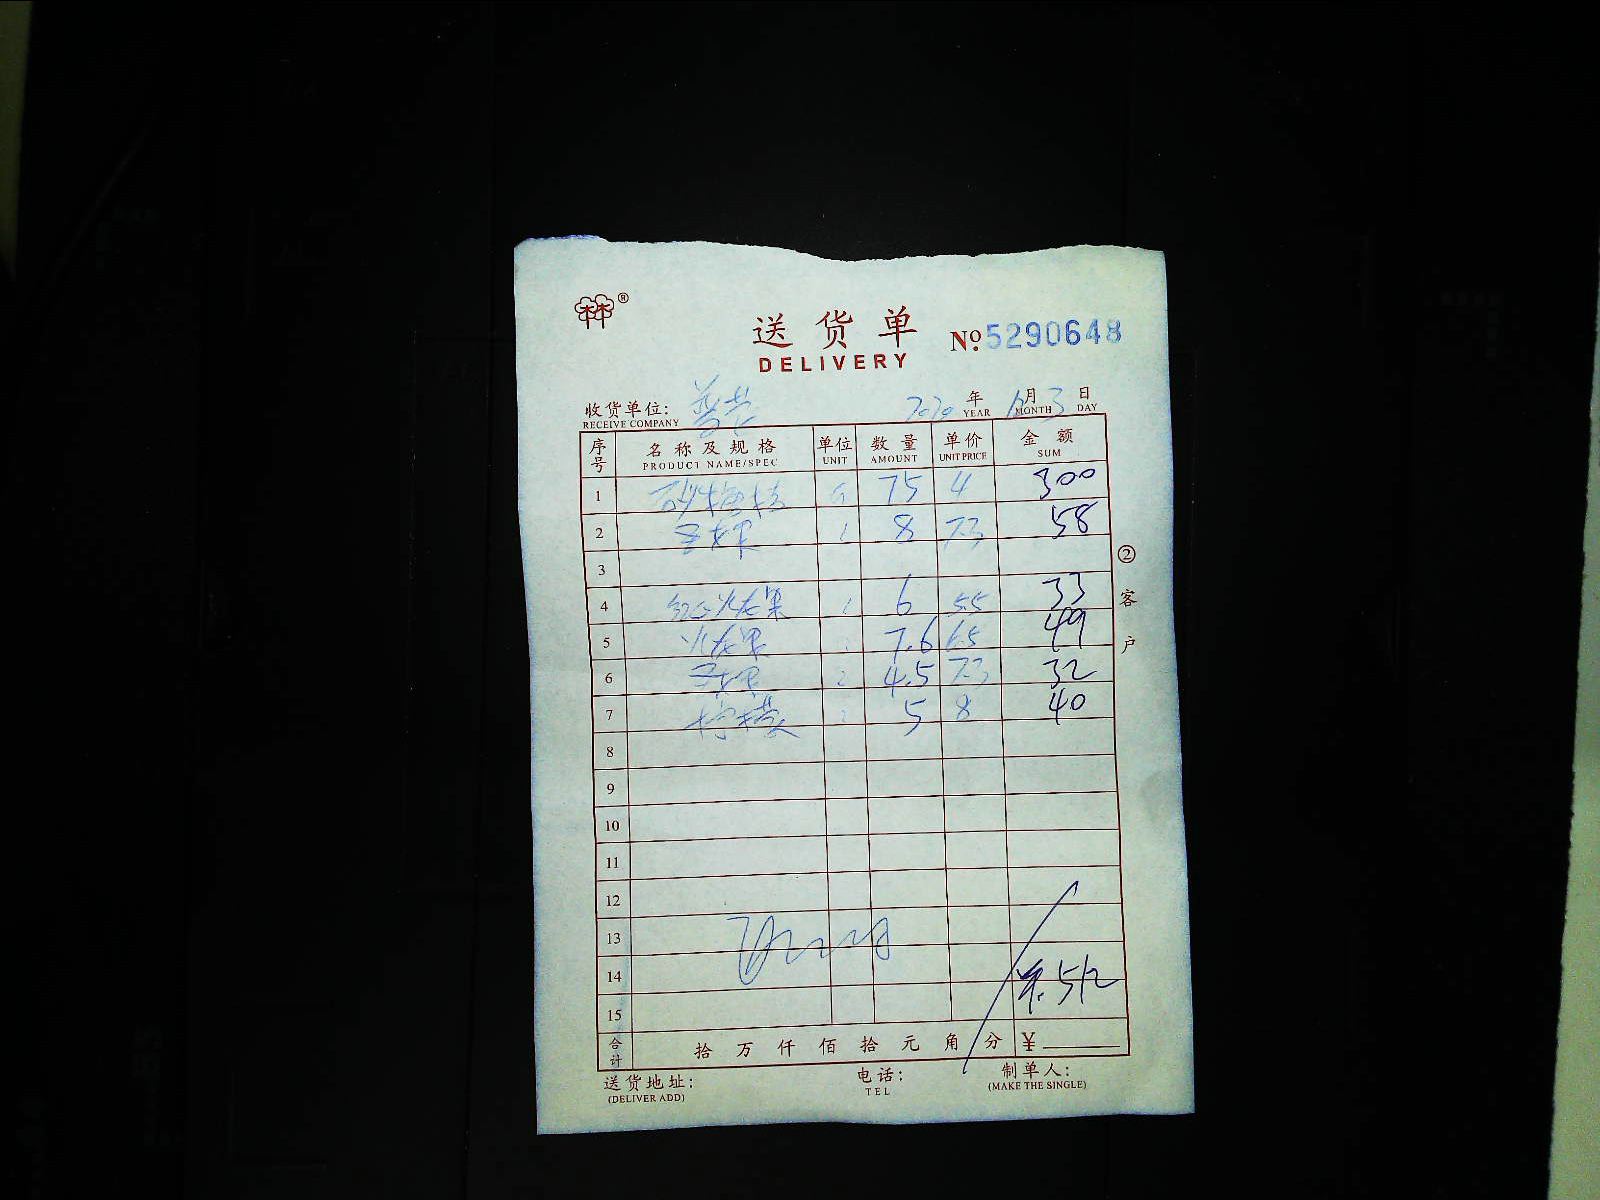 ®
送货单
DELIVERY
№ 5290648
收货单位: 普芸 2020 年 月 3 日
RECEIVE COMPANY YEAR MONTH DAY
序号 名称及规格 单位 数量 单价 金额
PRODUCT NAME/SPEC UNIT AMOUNT UNIT PRICE SUM
1 砂糖桔 75 4 300
2 8 7.3 58
3
4 红心火龙果 6 5.5 33
5 火龙果 7.6 6.5 49
6 4.5 7.3 32
7 柠檬 5 8 40
8
9
10
11
12
13
14 512
15
合计 拾 万 仟 佰 拾 元 角 分 ¥
送货地址: 电话: 制单人:
(DELIVER ADD) TEL (MAKE THE SINGLE)
② 客户